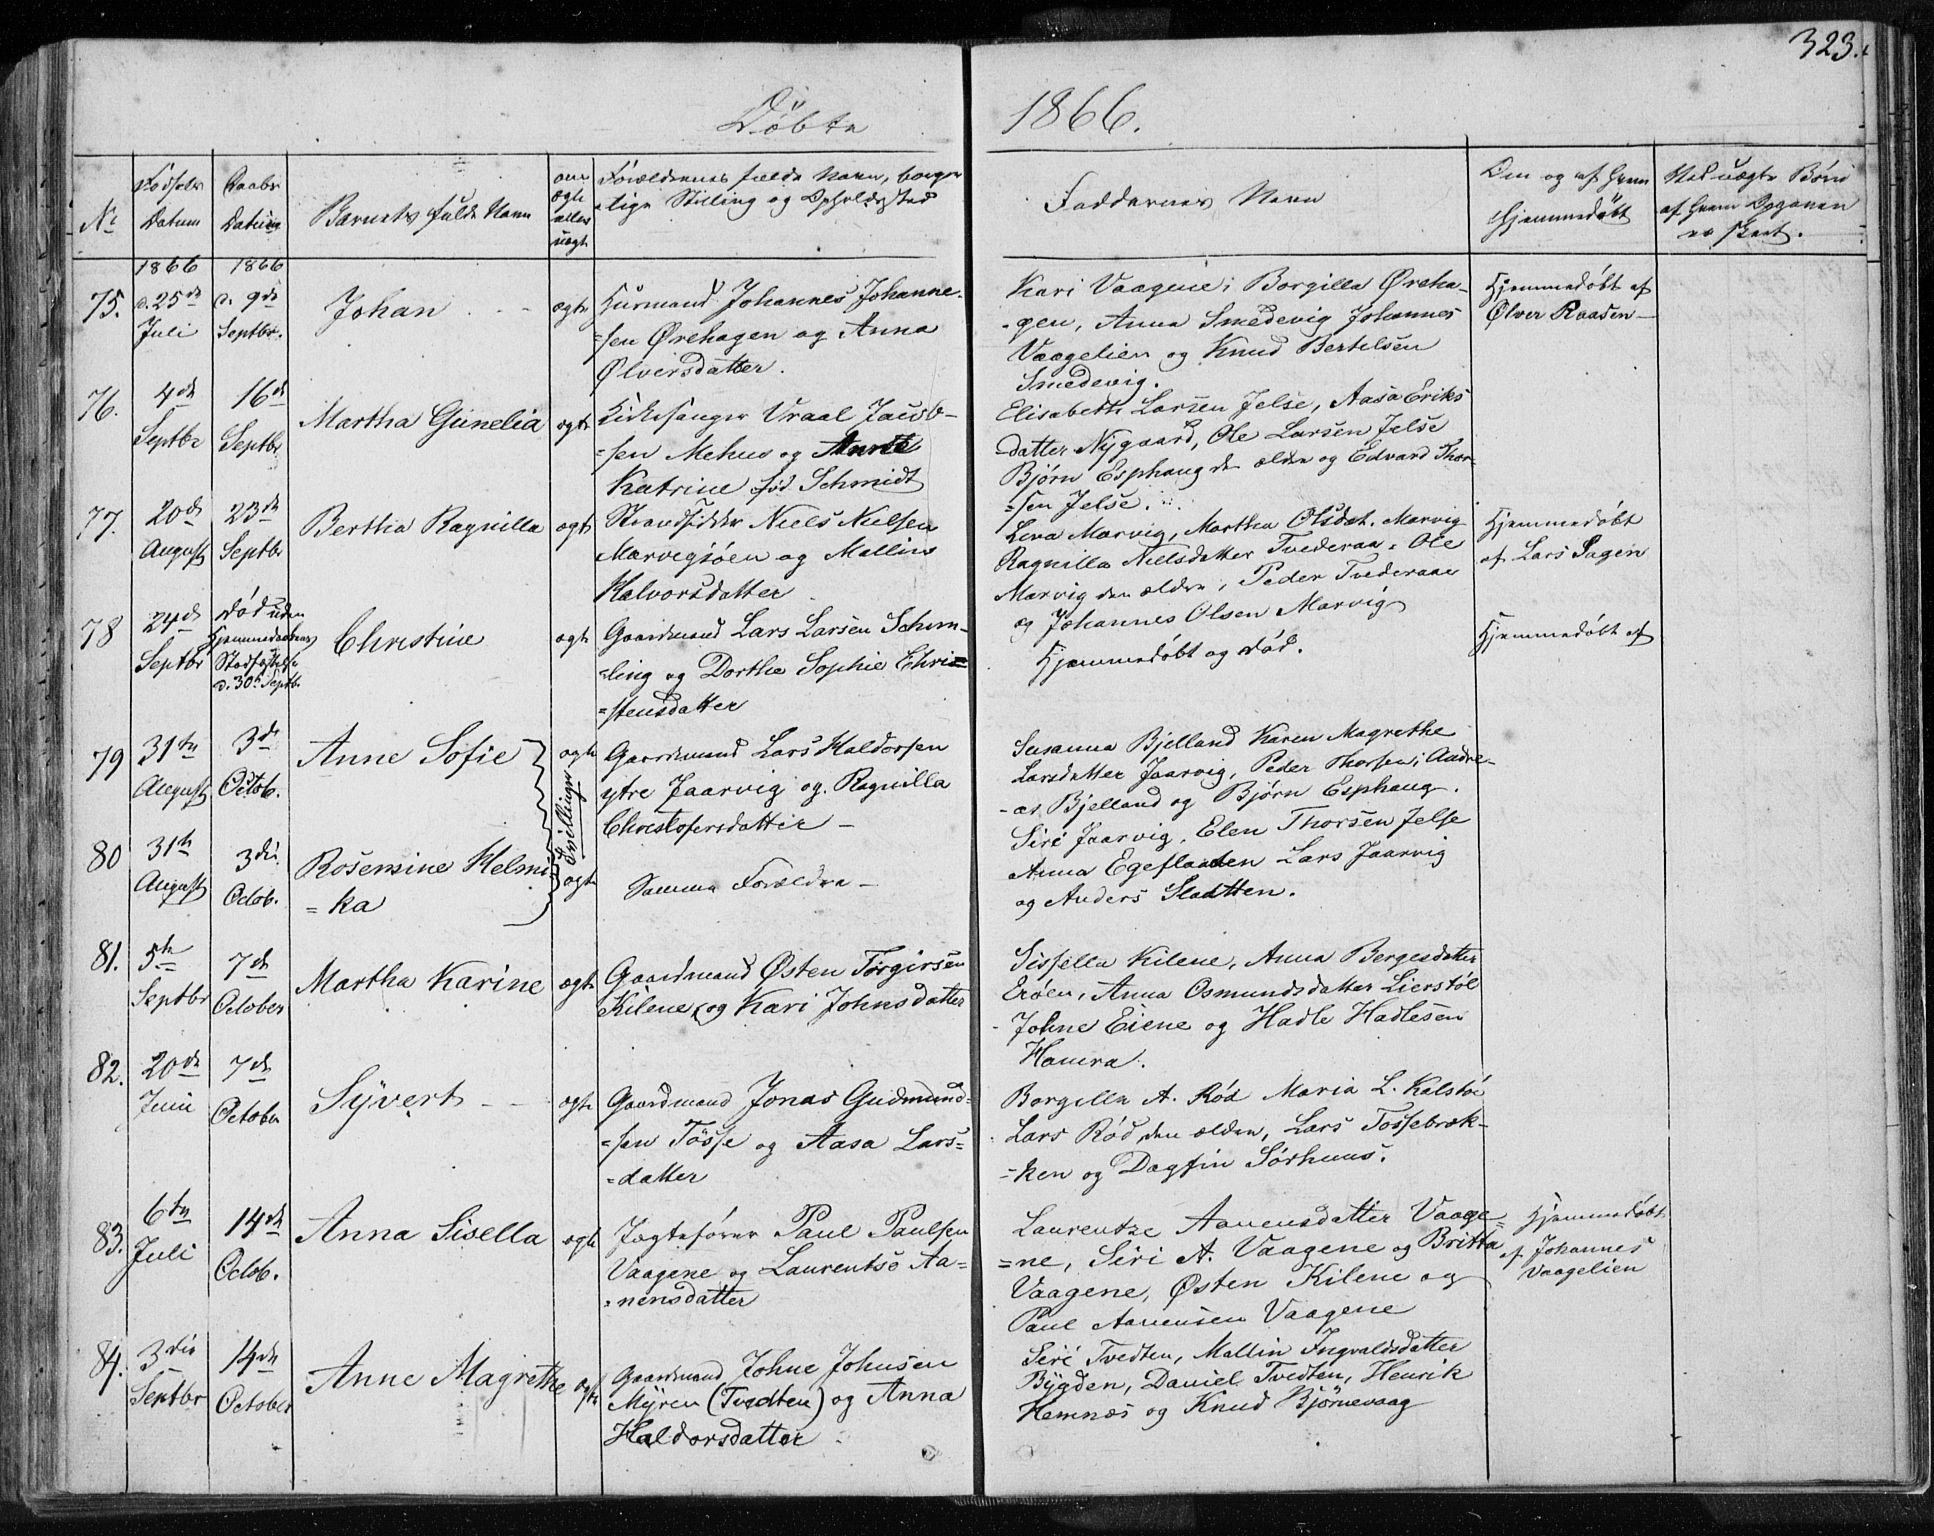 323.
Döbte 1866.
No
Fødsels Datum
Daabs Datum
Barnets fulde Navn
om ægte eller uægte
Forældrenes fulde Navn, borger-
-lige Stilling og Opholdssted
Faddernes Navn
Om og af hvem
Hjemmedøbt
Ved uægte Børn
af hvem Opgaven
er skeet.
1866 1866
75. d. 25de Juli
d. 9de Septbr.
Johan
ægte
Huusmand Johannes Johanne-
=sen Ørehagen og Anna
Ølversdatter.
Kari Vaagene, Borgilla Øreha-
-gen, Anna Smedevig Johannes
Vaagelien og Knud Bertelsen
Smedevig.
Hjemmedøbt af
Ølver Raasen
76. 4de Septbr
16de Septbr
Martha Gunelia
ægte
Kirkesanger Vraal Jacob-
=sen Mehus og Anne
Katrine fød Schmidt
Elisabeth Larsen Jelse, Aasa Eriks
datter Nygaard, Ole Larsen Jelse
Bjørn Esphaug den ældre og Edvard Thor-
=sen Jelse.
77. 20de August
23de Septbr
Bertha Ragnilla
ægte
Strandsidder Niels Nielsen
Marvigsøen og Mallins
Halvorsdatter
Lena Marvig, Martha Olsdat. Marvig
Ragnilla Nielsdatter Tvederaa, Ole
Marvig den ældre, Peder Tvederaae
og Johannes Olsen Marvig
Hjemmedøbt
af Lars Sagen
78 24de Septbr
død uden
Hjemmedaabens
Stadfæstelse
d. 30te Septbr.
Christine
ægte
Gaardmand Lars Larsen Schim-
=ling og Dorthe Sophie Chri=
=stensdatter
Hjemmedøbt og død.
Hjemmedøbt af
79 31te August
3die Octob.
Anne Sofie
ægte
Tvillinger
Gaardmand Lars Haldorsen
ytre Jaarvig og Ragnilla
Christofersdatter
Susanna Bjelland Karen Magrethe
Larsdatter Jaarvig, Peder Thorsen, Andre-
-as Bjelland og Bjørn Esphaug.
80 31te August
3die Octob.
Rosensine Helmi
=ka
ægte
Samme Forældre
Siri Jaarvig, Elen Thorsen Jelse
Anna Egeflaaten Lars Jaarvig
og Anders Slaatten.
81. 5te Septbr
7de October
Martha Karine
ægte
Gaardmand Østen Torgirsen
Kilene og Kari Johnsdatter
Sissella Kilene, Anna Bergesdatter
Erøen, Anna Osmundsdatter Lierstöl
Johne Eiene og Hadle Hadlesen
Hamra.
82. 20de Juni
7de October
Syvert
ægte
Gaardmand Jonas Gudmund-
=sen Tösse og Aasa Lars=
=datter
Borgilla A. Rød Maria L. Kalstøe
Lars Rød den ældre, Lars Tossebræk-
-ken og Dagfin Sørhuus.
83. 6te Juli
14de Octob.
Anna Sisella
ægte
Jagtefører Paul Paulsen
Vaagene og Laurentse Aa=
=nensdatter
Laurentze Aanensdatter Vaage=
=ne, Siri A. Vaagene og Britta
Vaagene, Østen Kilene og
Paul Aanensen Vaagene
Hjemmedøbt
af Johannes
Vaagelien
84. 3die Septbr
14de October
Anne Magrethe
ægte
Gaardmand Johne Johnsen
Myren (Tvedten) og Anna
Haldorsdatter
Siri Tvedten, Mallin Ingvaldsdatter
Bygden, Daniel Tvedten, Henrik
Hemnæs og Knud Bjørnevaag